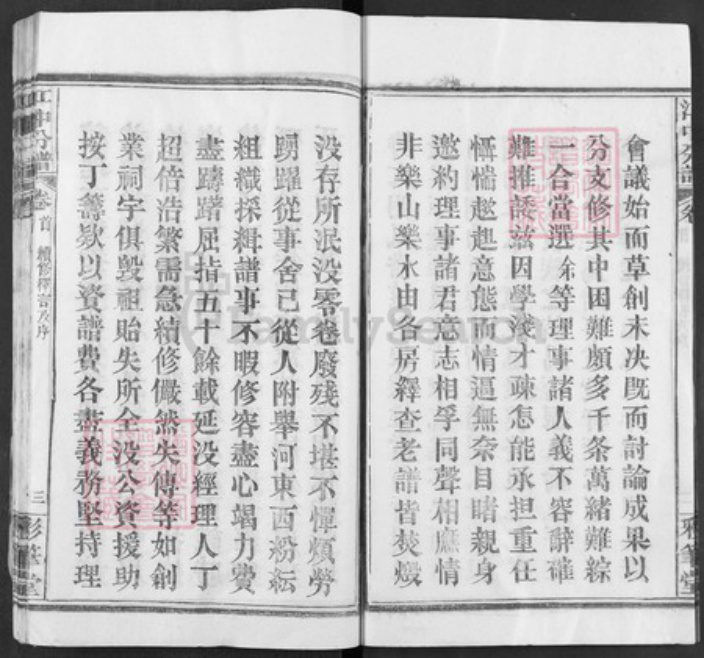 會議始而草創未決既而討論成果以
分支修其中困難頗多千条萬緒難綜
一合當選余等理事諸人義不容辭確
難推諉玆因學淺才疎怎能承担重任
懾惴趑趄意態而情逼無奈目睹親身
邀約理事諸君意志相孚同聲相應情
非樂山樂水由各房繹查老譜皆焚燬
没存所泯没零卷廢残不堪不憚煩勞
踴躍從事舍己從人附舉河東西紛紜
組織採緝譜事不暇修容盡心竭力費
盡躊躇屈指五十餘載延没經理人丁
超倍浩繁需急續修儼然失傳等如創
業祠宇俱毀祖貽失所全没公資援助
按丁籌欵以資譜費各盡義務堅持理
江冲分譜
卷首
續修釋言及序
三
彩筆堂
FamilySearch